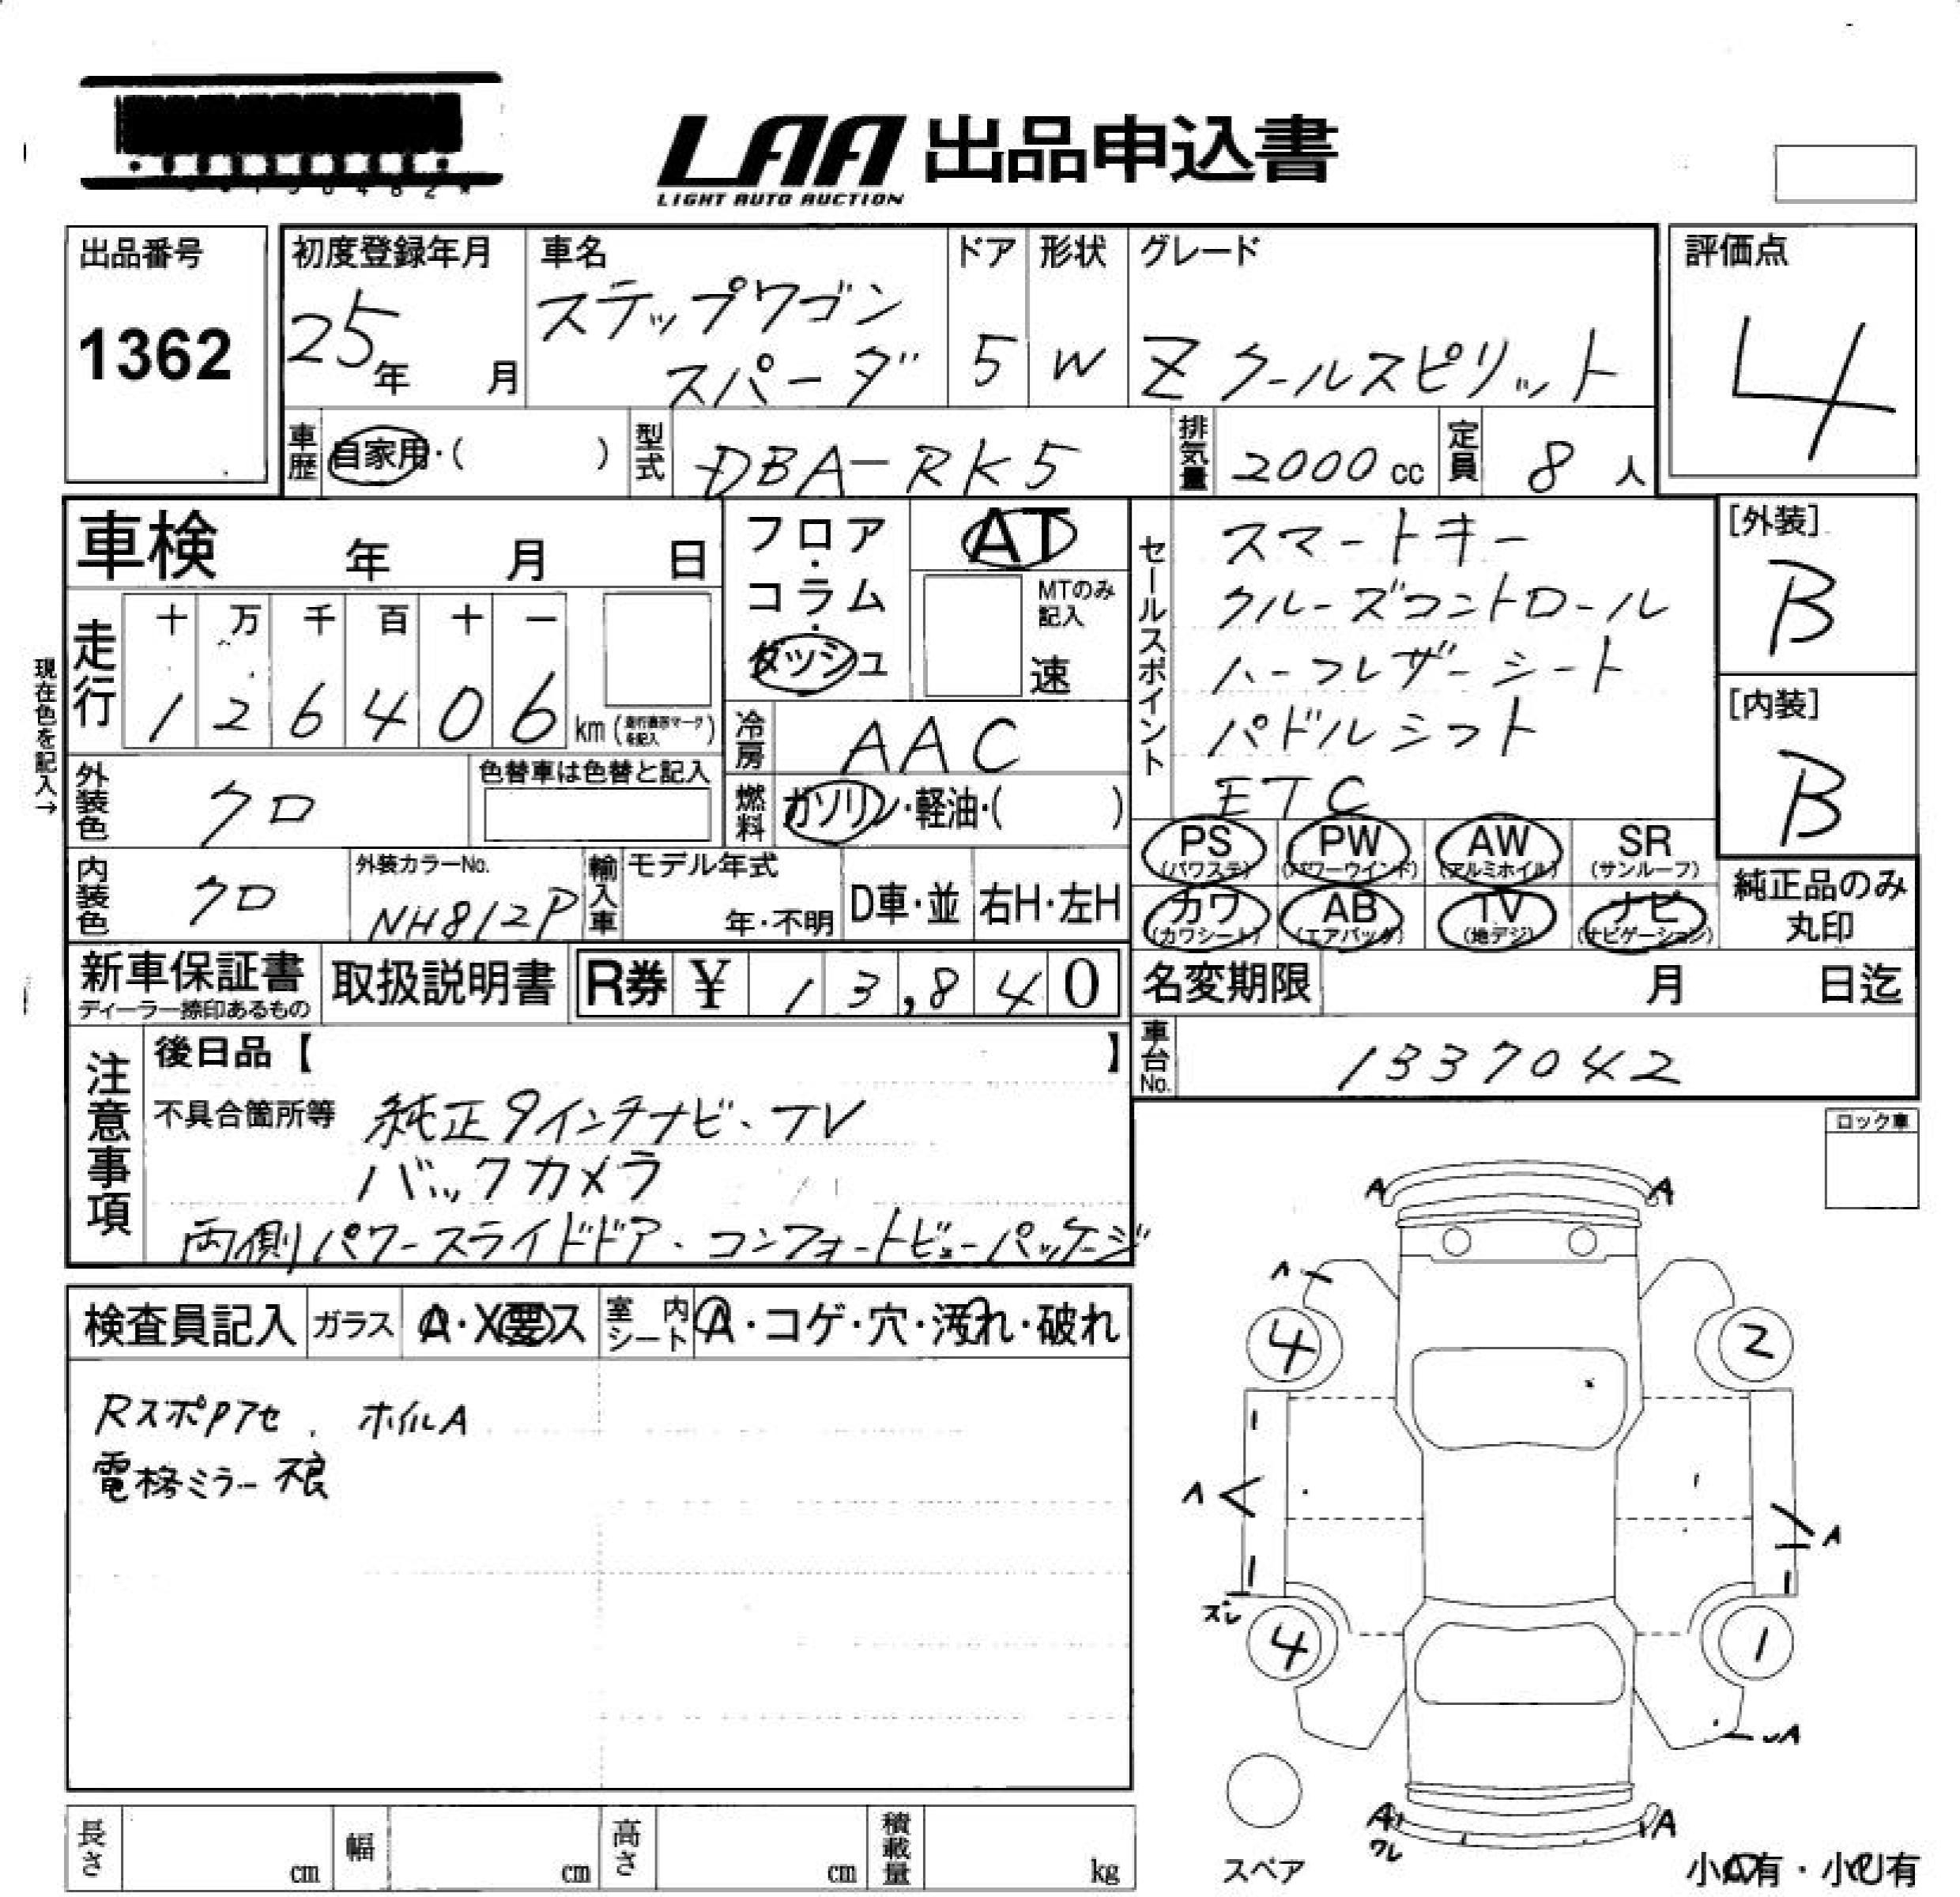 LAA 出品申込書
LIGHT AUTO AUCTION
出品番号
1362
初度登録年月
25年 月
車名
ステップワゴン
スパーダ
ドア
5
形状
W
グレード
Z クールスピリット
評価点
4
車歴 自家用・( )
型式 DBA-RK5
排気量 2000 cc
定員 8 人
車検 年 月 日
フロア・コラム・ダッシュ
AT
MTのみ記入
速
セールスポイント
スマートキー
クルーズコントロール
ハーフレザーシート
パドルシフト
ETC
[外装]
B
[内装]
B
現在色を記入→
走行
十 万 千 百 十 一
1 2 6 4 0 6 km
冷房 AAC
外装色 クロ
色替車は色替と記入
燃料 ガソリン・軽油・( )
PS (パワステ) PW (パワーウインド) AW (アルミホイル) SR (サンルーフ)
カワ (カワシート) AB (エアバッグ) TV (地デジ) ナビ (ナビゲーション)
純正品のみ
丸印
内装色 クロ
外装カラーNo.
NH812P
輸入車
モデル年式
年・不明
D車・並
右H・左H
新車保証書
ディーラー捺印あるもの
取扱説明書
R券 ¥ 13,840
名変期限 月 日迄
車台No. 1337042
注意事項
後日品【 】
不具合箇所等 純正9インチナビ、TV
バックカメラ
両側パワースライドドア、コンフォートビューパッケージ
ロック車
検査員記入 ガラス A・X要ス 室内シート A・コゲ・穴・汚れ・破れ
RスポPアセ、ホイルA
電格ミラー不良
A A
A
4 2
A A
ズレ
4 1
A
A ワレ A
スペア
小A有・小U有
長さ cm 幅 cm 高さ cm 積載量 kg